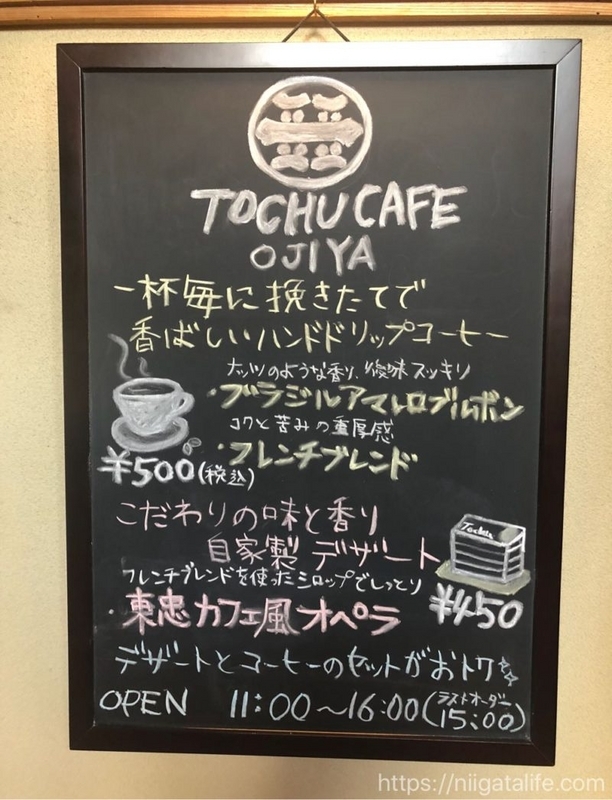 TOCHU CAFE
OJIYA
一杯毎に挽きたてで
香ばしいハンドドリップコーヒー
ナッツのような香り、後味スッキリ
・ブラジルアマレロブルボン
コクと苦みの重厚感
・フレンチブレンド
¥500(税込)
こだわりの味と香り
自家製 デザート
フレンチブレンドを使ったシロップでしっとり
・東忠カフェ風オペラ
¥450
デザートとコーヒーのセットがおトク
OPEN 11:00〜16:00(ラストオーダー 15:00)
https://niigatalife.com